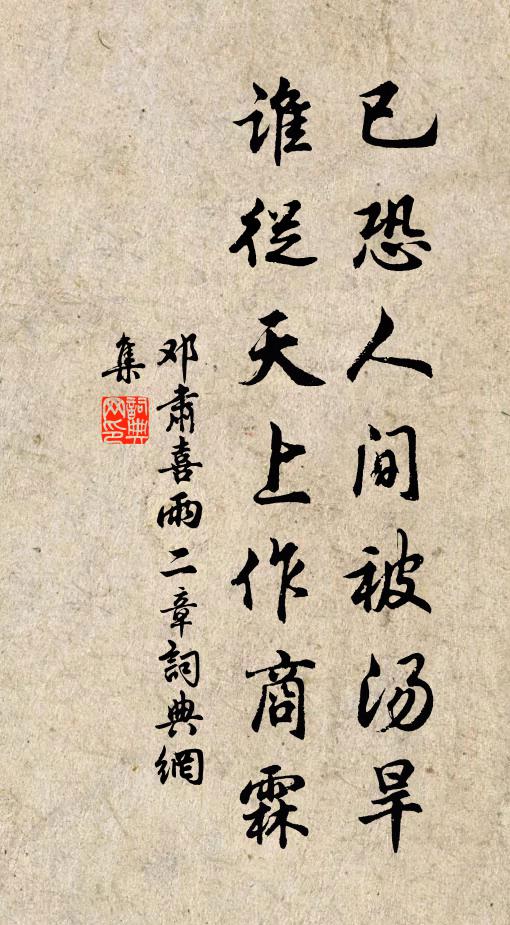 已恐人间被汤旱
谁從天上作商霖
邓肃喜雨二章詞典網
集
詞典網印